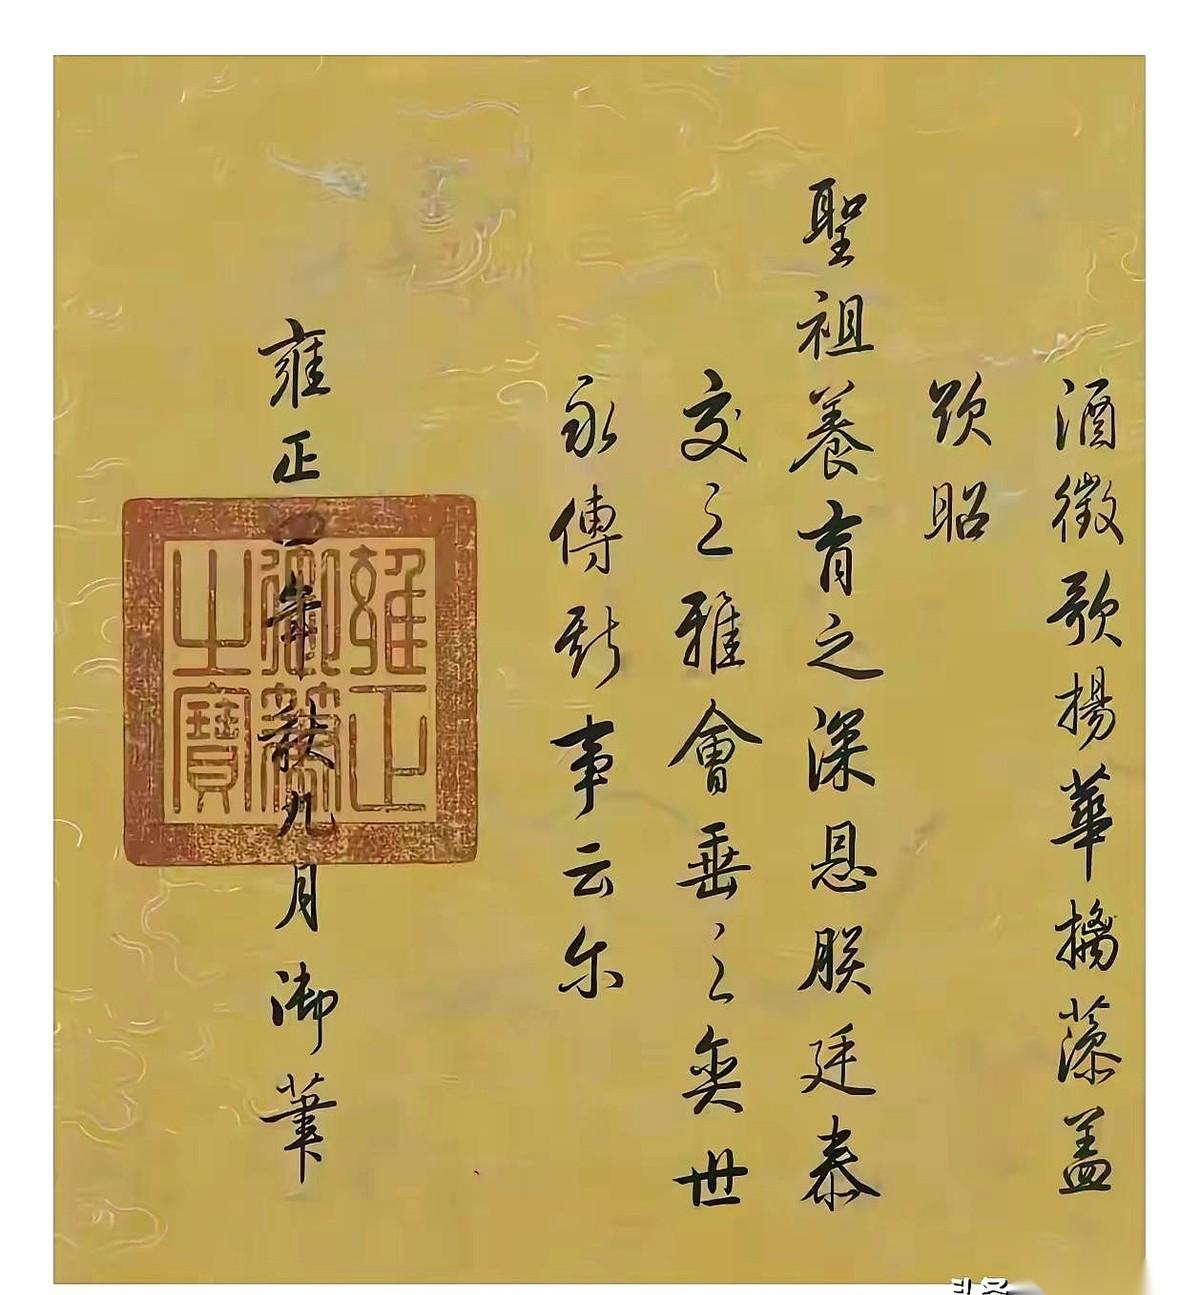 酒徵歌揚華摛藻盖
欲昭
聖祖養育之深恩朕廷泰
交之雅會垂之奕世
永傳斯事云尔
雍正四年秋九月御筆
雍正御筆之寶